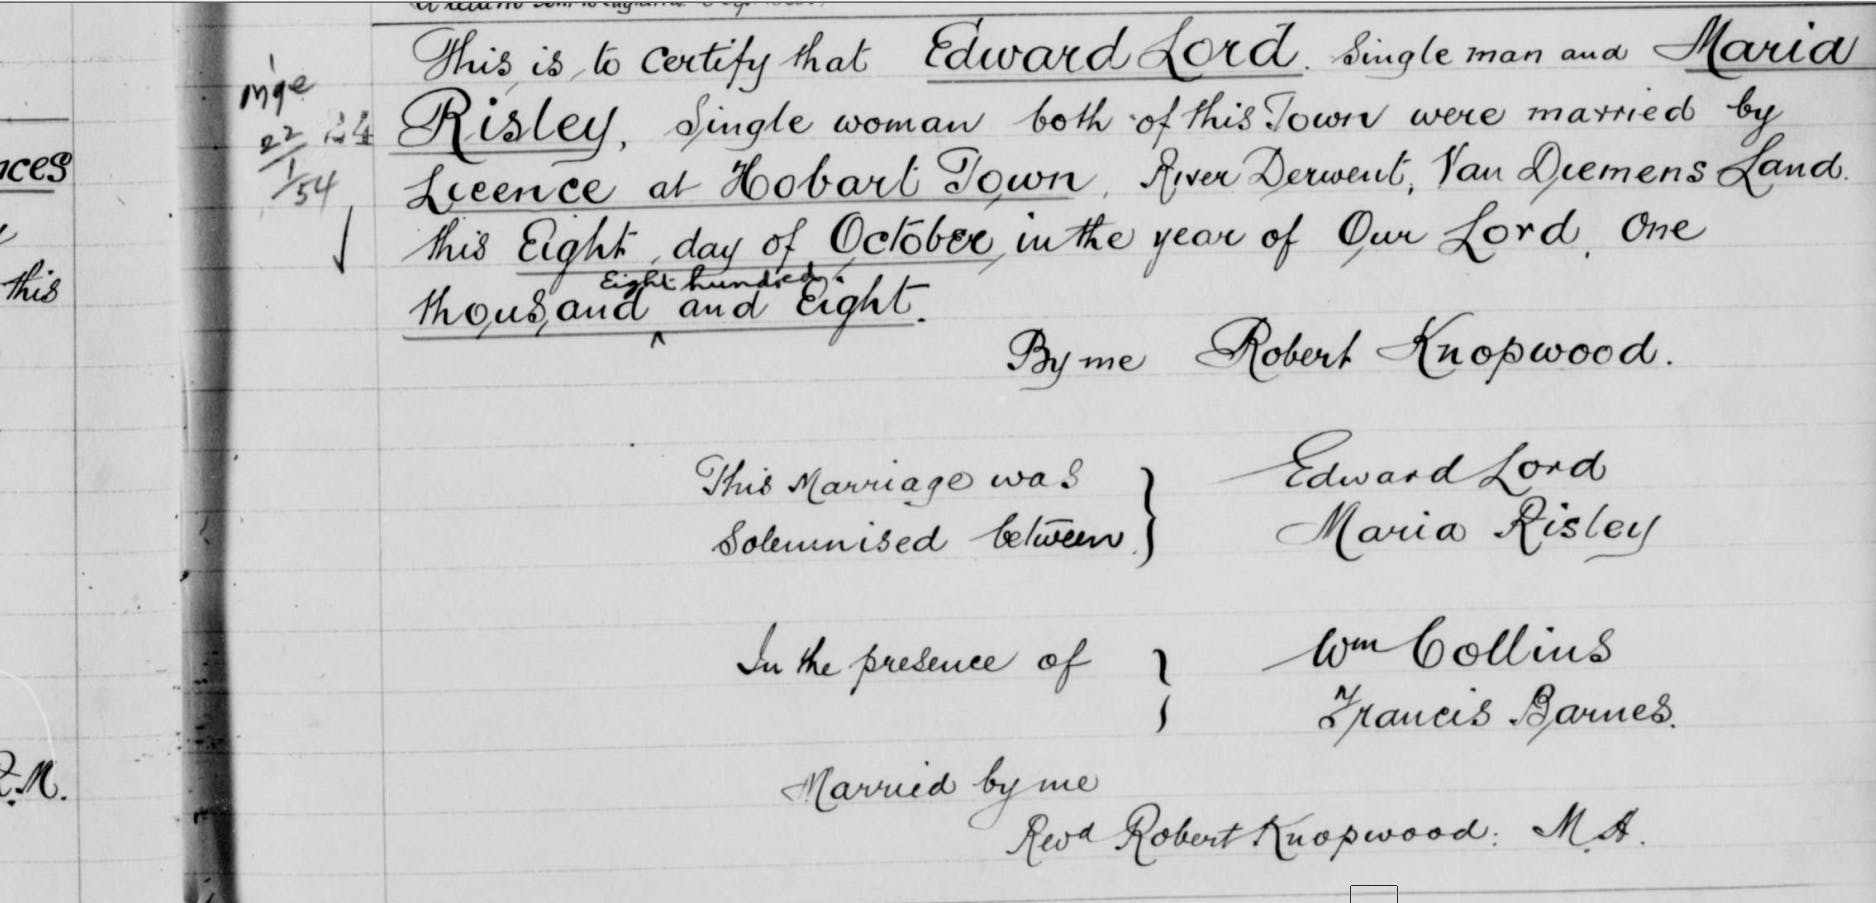 This is to certify that Edward Lord. Single man and Maria
Risley, Single woman both of this Town were married by
Licence at Hobart Town, River Derwent, Van Diemens Land.
this Eight day of October, in the year of Our Lord, One
Eight hundred
thousand ^ and Eight.
By me Robert Knopwood.
This Marriage was } Edward Lord
Solemnised between } Maria Risley
In the presence of } Wm Collins
Francis Barnes.
Married by me
Revd Robert Knopwood. M.A.
m'ge
22/1/54
24
nces
this
R.M.